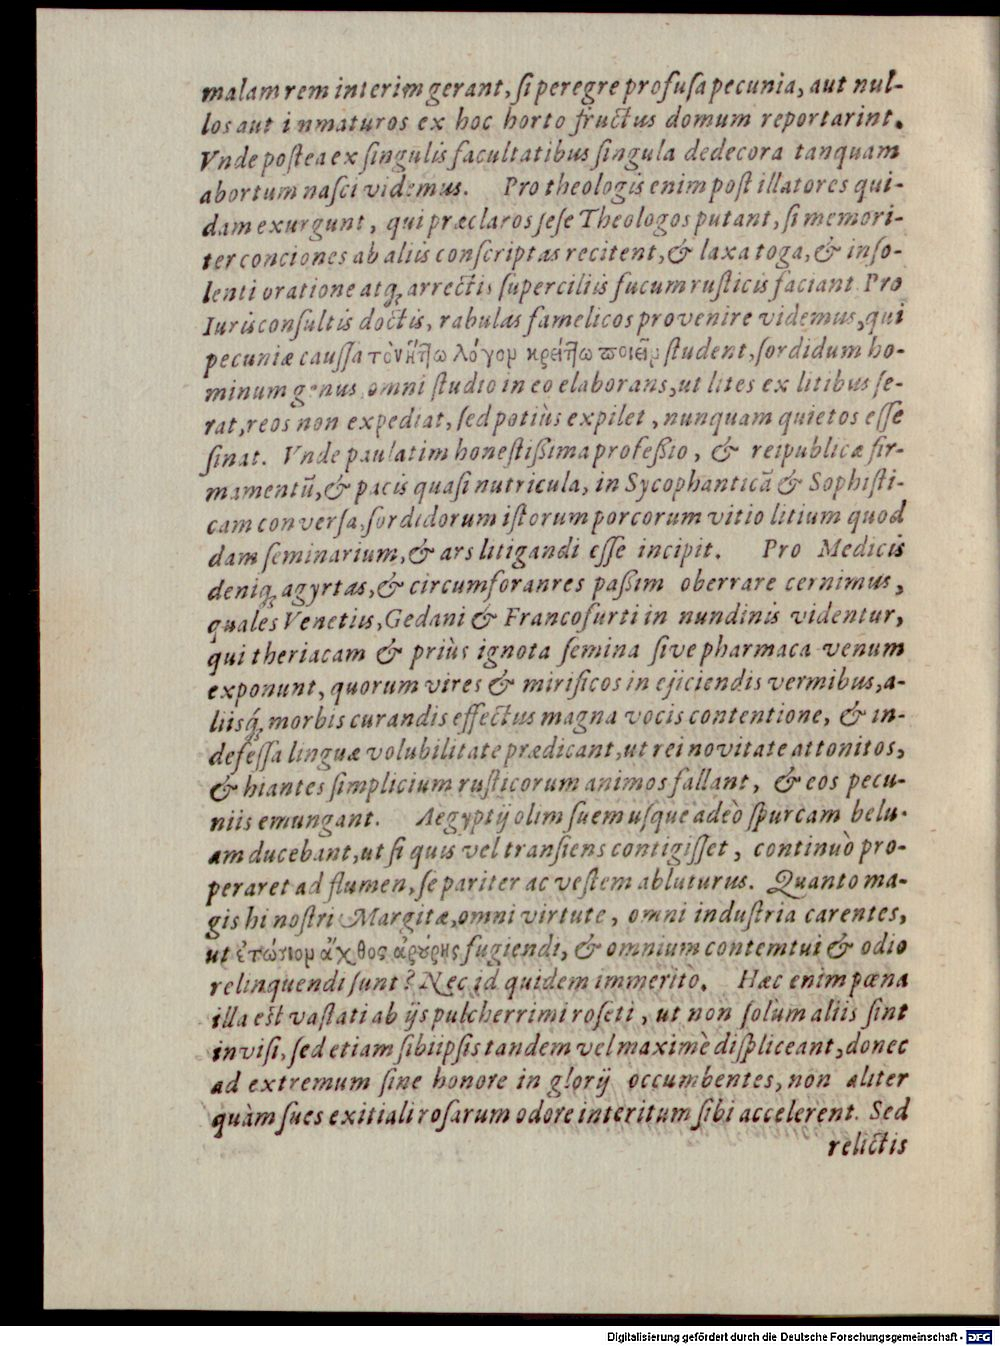 malam rem interim gerant, ſi peregre profuſa pecunia, aut nul-
los aut inmaturos ex hoc horto fructus domum reportarint.
Vnde poſtea ex ſingulis facultatibus ſingula dedecora tanquam
abortum naſci videmus. Pro theologis enim poſtillatores qui-
dam exurgunt, qui præclaros ſeſe Theologos putant, ſi memori-
ter conciones ab aliis conſcriptas recitent, & laxa toga, & inſo-
lenti oratione atq; arrectis ſuperciliis fucum ruſticis faciant. Pro
Iurisconſultis doctis, rabulas famelicos provenire videmus, qui
pecuniæ cauſſa τὸν ἥττω λόγον κρείττω ποιεῖν ſtudent, ſordidum ho-
minum genus, omni ſtudio in eo elaborans, ut lites ex litibus ſe-
rat, reos non expediat, ſed potiùs expilet, nunquam quietos eſſe
ſinat. Vnde paulatim honeſtißima profeßio, & reipublicæ fir-
mamentũ, & pacis quaſi nutricula, in Sycophanticã & Sophiſti-
cam converſa, ſordidorum iſtorum porcorum vitio litium quod
dam ſeminarium, & ars litigandi eſſe incipit. Pro Medicis
deniq; agyrtas, & circumforanres paßim oberrare cernimus,
quales Venetiis, Gedani & Francofurti in nundinis videntur,
qui theriacam & priùs ignota ſemina ſive pharmaca venum
exponunt, quorum vires & mirificos in ejiciendis vermibus, a-
liisq́; morbis curandis effectus magna vocis contentione, & in-
defeſſa linguæ volubilitate prædicant, ut rei novitate attonitos,
& hiantes ſimplicium ruſticorum animos fallant, & eos pecu-
niis emungant. Aegyptij olim ſuem uſque adeò ſpurcam belu-
am ducebant, ut ſi quis vel tranſiens contigiſſet, continuò pro-
peraret ad flumen, ſe pariter ac veſtem abluturus. Quanto ma-
gis hi noſtri Margitæ, omni virtute, omni induſtria carentes,
ut ἐτώσιον ἄχθος ἀρούρης fugiendi, & omnium contemtui & odio
relinquendi ſunt? Nec id quidem immeritò. Hæc enim pœna
illa eſt vaſtati ab ijs pulcherrimi roſeti, ut non ſolùm aliis ſint
inviſi, ſed etiam ſibiipſis tandem vel maximè diſpliceant, donec
ad extremum ſine honore in glorij occumbentes, non aliter
quàm ſues exitiali roſarum odore interitum ſibi accelerent. Sed
relictis
Digitalisierung gefördert durch die Deutsche Forschungsgemeinschaft - DFG